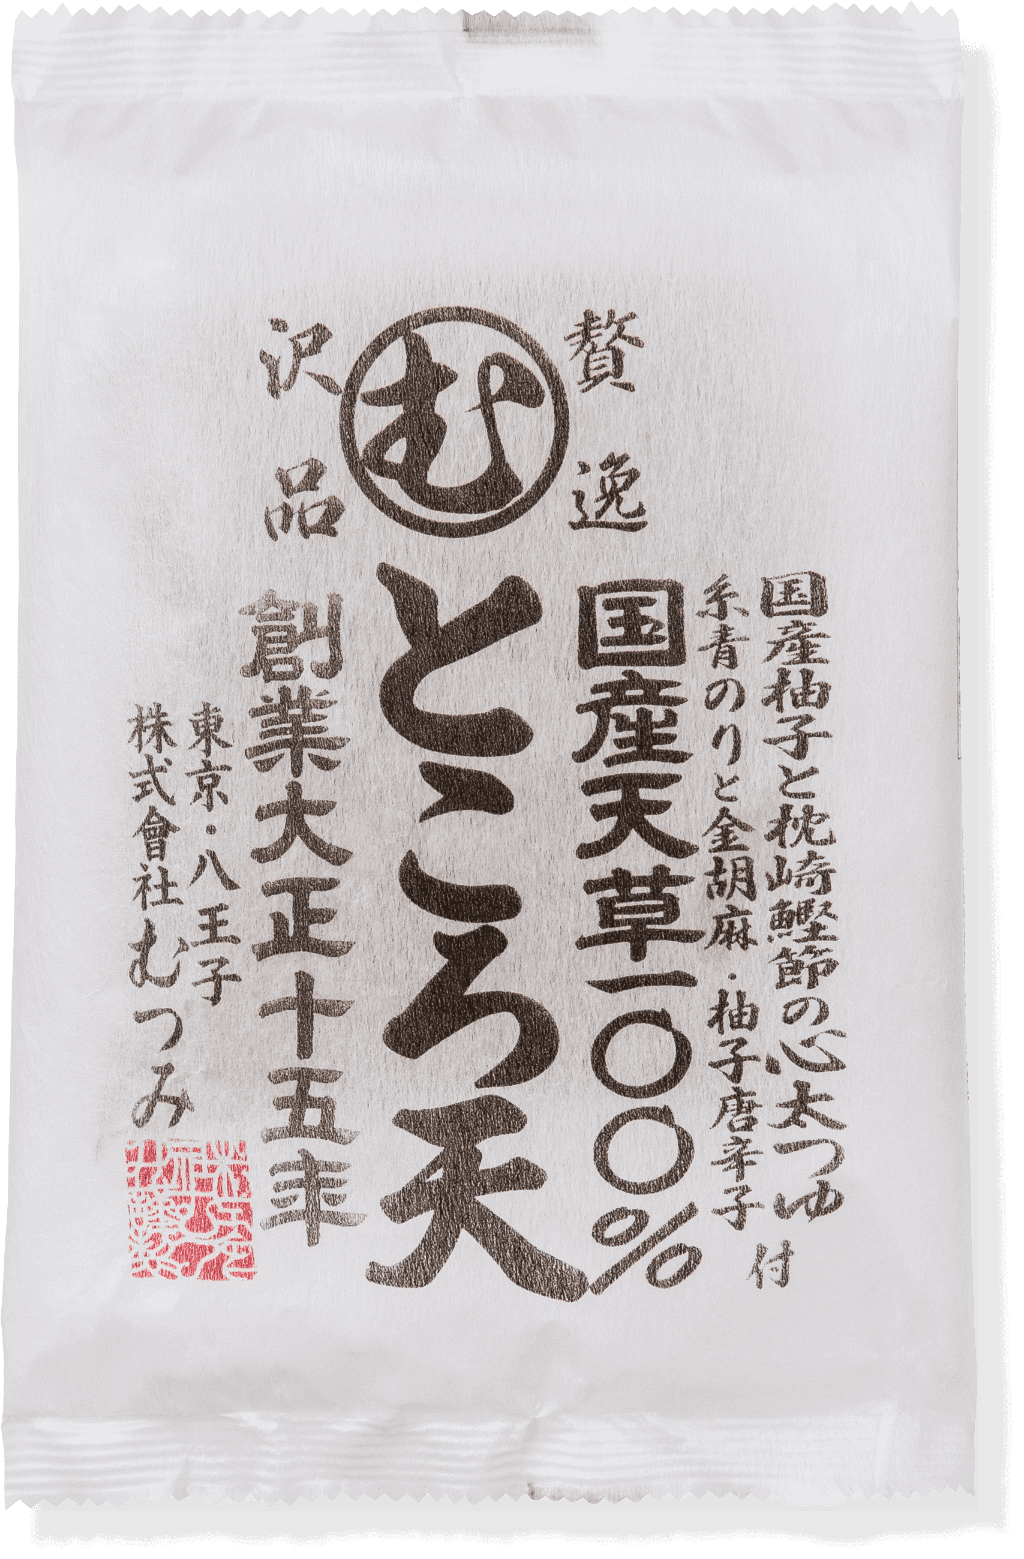 贅沢
逸品
む
国産柚子と枕崎鰹節の心太つゆ
糸青のりと金胡麻・柚子唐辛子
付
国産天草一〇〇%
ところ天
創業大正十五年
東京・八王子
株式會社むつみ